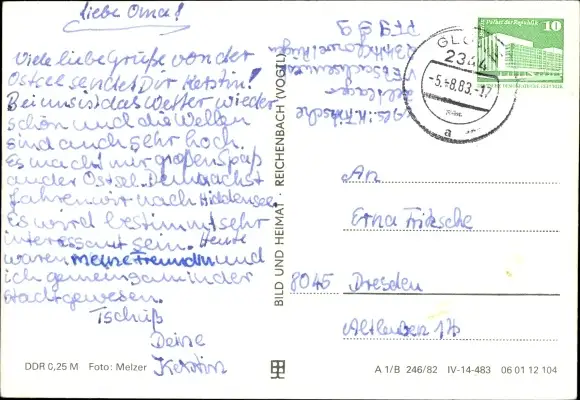 Liebe Oma!
Viele liebe Grüße von der
Ostsee sendet Dir Kerstin!
Bei uns ist das Wetter wieder
schön und die Wellen
sind auch sehr hoch.
Es macht mir großen Spaß
an der Ostsee. Demnächst
fahren wir nach Hiddensee.
Es wird bestimmt sehr
interessant sein. Heute
waren meine Freundin und
ich gemeinsam in der
Stadt gewesen.
Tschüß
Deine
Kerstin
DDR 0,25 M Foto: Melzer
BILD UND HEIMAT · REICHENBACH (VOGTL)
Abs.: K. Fritzsche
2344
-5.-8.83.-17
a
10
An
Erna Fritzsche
8045 Dresden
A 1/B 246/82 IV-14-483 06 01 12 104